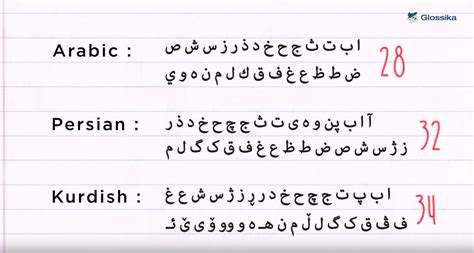 Glossika
Arabic :
ا ب ت ث ج ح خ د ذ ر ز س ش ص
ض ط ظ ع غ ف ق ك ل م ن ه و ي
28
Persian :
آ ا ب پ ن و ه ی ت ث ج چ ح خ د ذ ر
ز ژ س ش ص ض ط ظ ع غ ف ق ک گ ل م
32
Kurdish :
ا ب پ ت ج چ ح خ د ر ڕ ز ژ س ش ع غ
ف ڤ ق ک گ ل ڵ م ن هـ ە و وو ۆ ی ێ ئـ
34